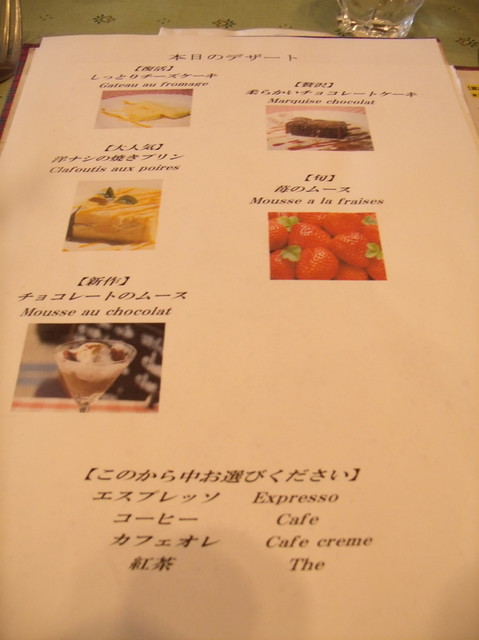 本日のデザート
【復活】
しっとりチーズケーキ
Gateau au fromage
【贅沢】
柔らかいチョコレートケーキ
Marquise chocolat
【大人気】
洋ナシの焼きプリン
Clafoutis aux poires
【旬】
苺のムース
Mousse a la fraises
【新作】
チョコレートのムース
Mousse au chocolat
【このから中お選びください】
エスプレッソ Expresso
コーヒー Cafe
カフェオレ Cafe creme
紅茶 The